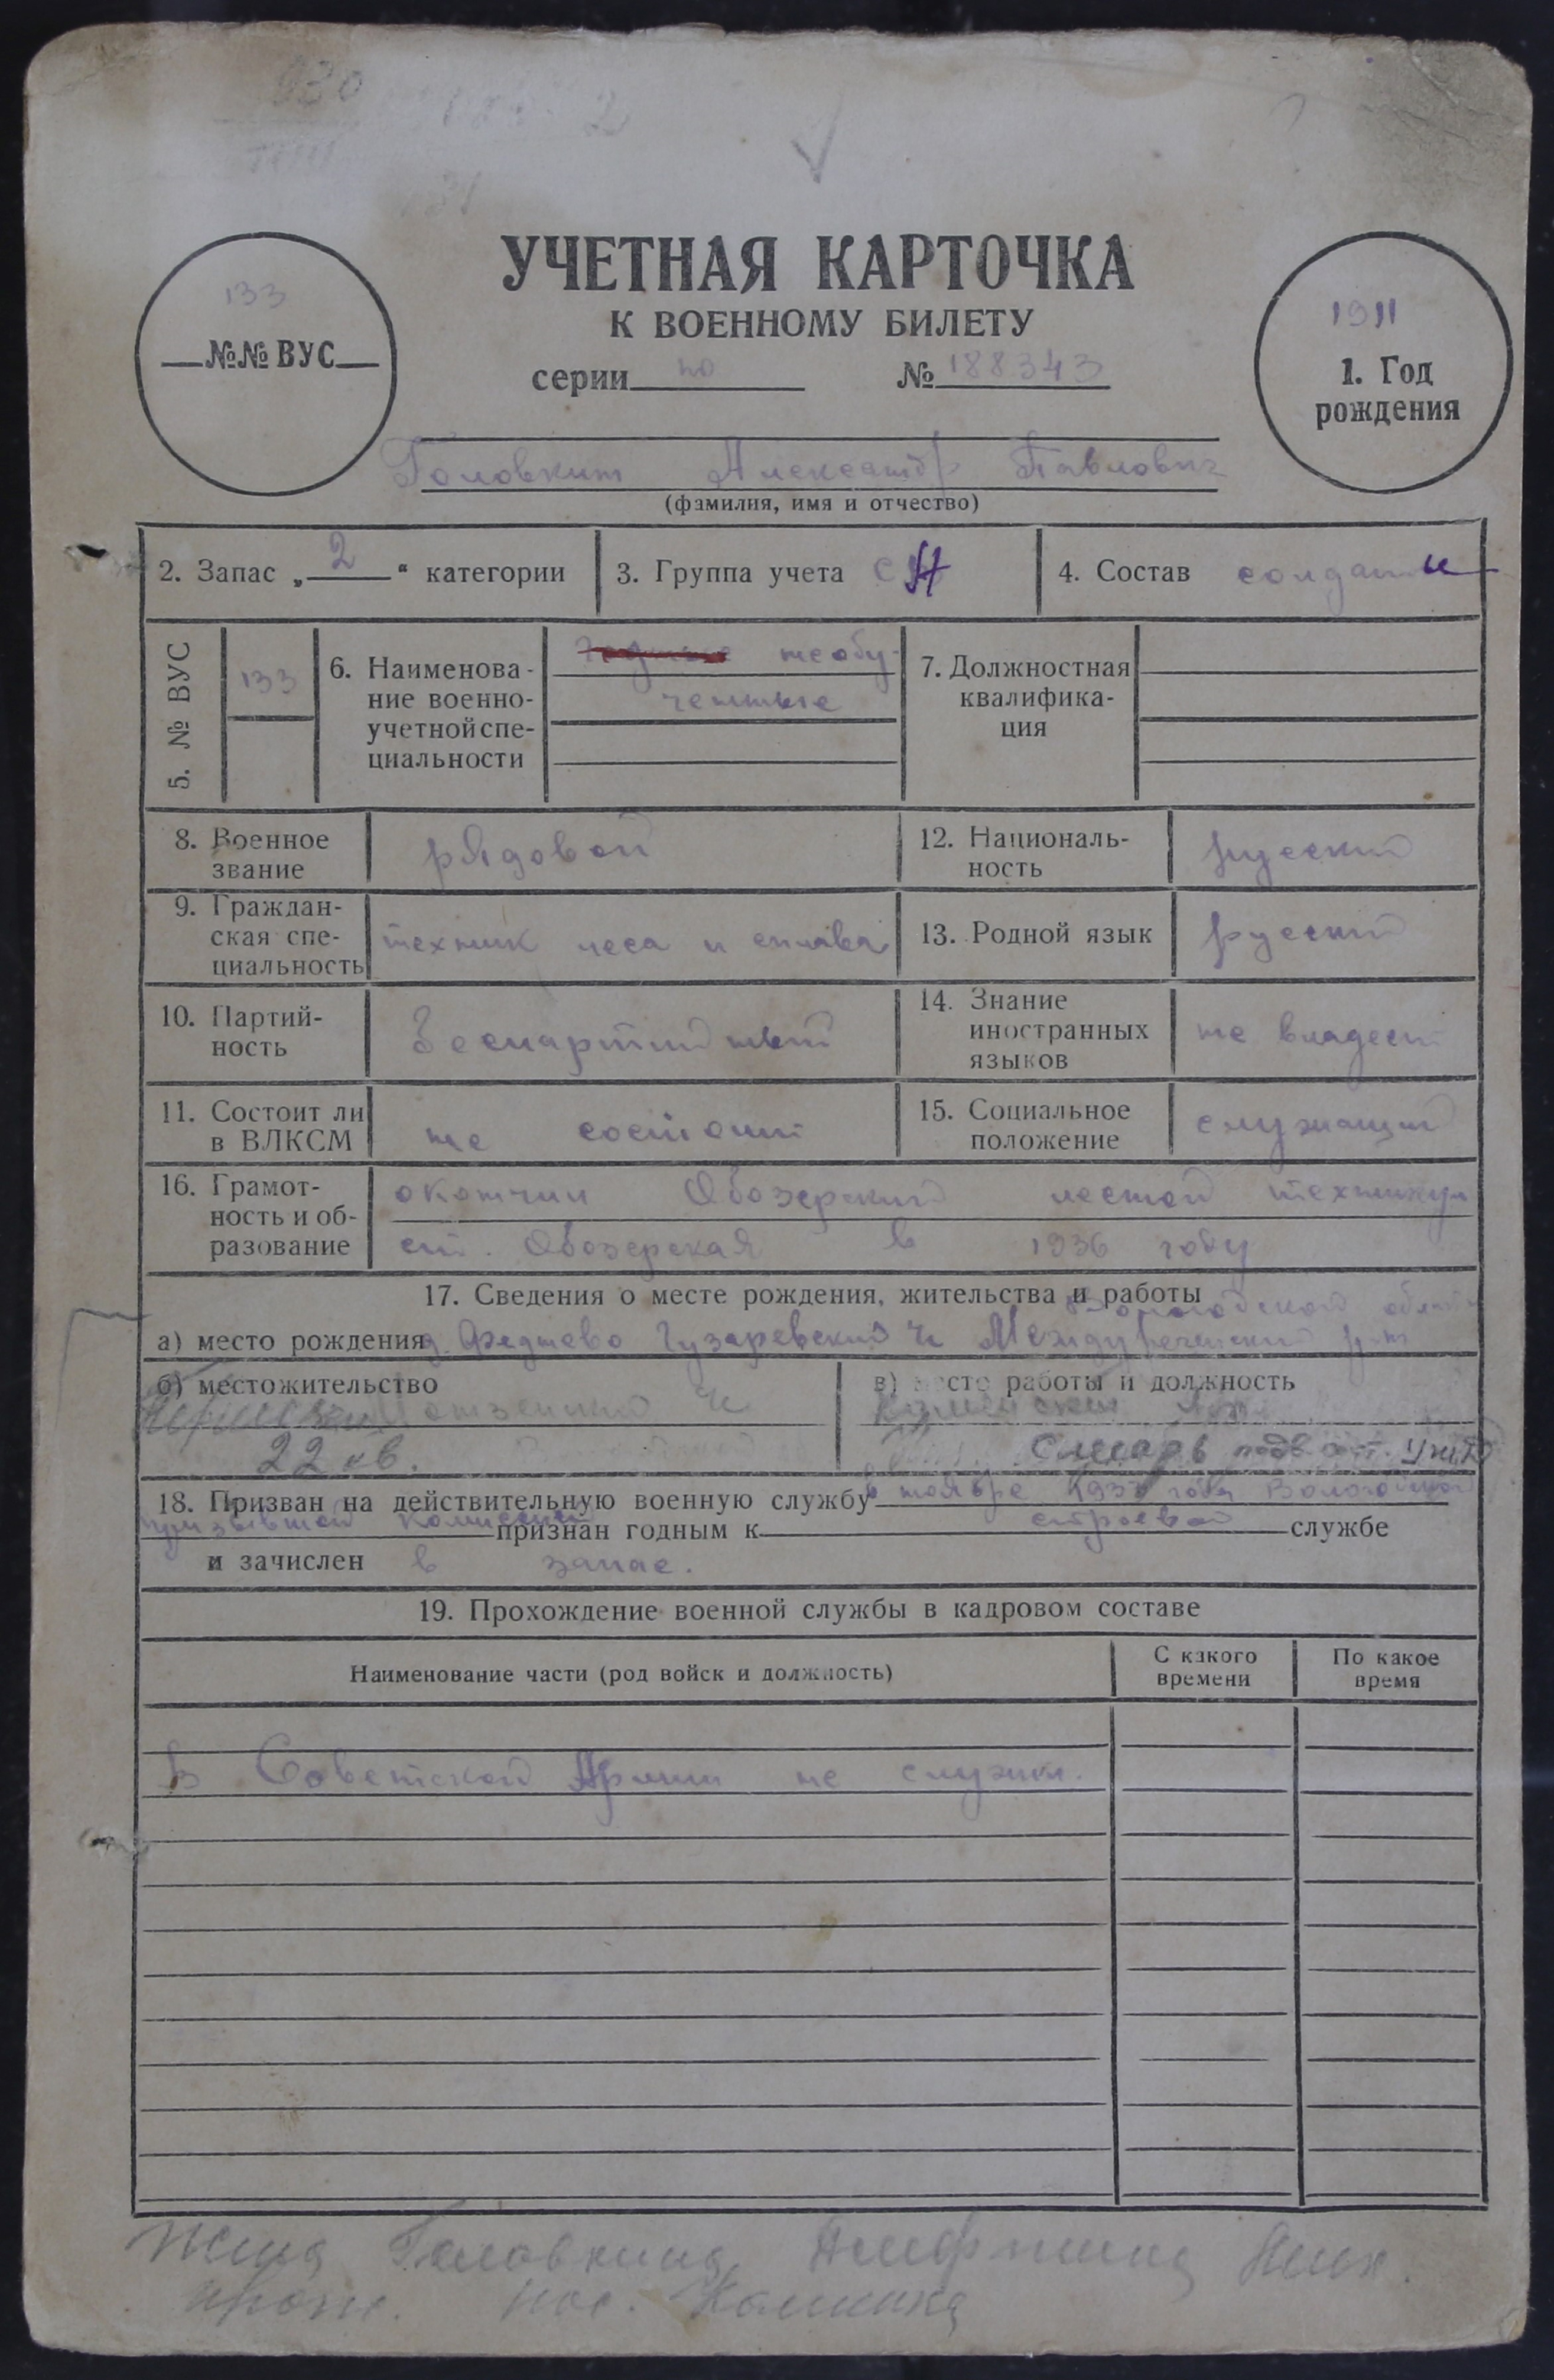 930
УЧЕТНАЯ КАРТОЧКА
К ВОЕННОМУ БИЛЕТУ
серии по № 188343
133
№№ ВУС
1911
1. Год
рождения
Головкин Александр Павлович
(фамилия, имя и отчество)
2. Запас „2“ категории
3. Группа учета
4. Состав солдаты
5. № ВУС 133
6. Наименова-
ние военно-
учетной спе-
циальности
годные необу-
ченные
7. Должностная
квалифика-
ция
8. Военное
звание
рядовой
12. Националь-
ность
русский
9. Граждан-
ская спе-
циальность
техник леса и сплава
13. Родной язык русский
10. Партий-
ность
Беспартийный
14. Знание
иностранных
языков
не владеет
11. Состоит ли
в ВЛКСМ
не состоит
15. Социальное
положение
служащий
16. Грамот-
ность и об-
разование
окончил Обозерский лесной техникум
ст. Обозерская в 1936 году
17. Сведения о месте рождения, жительства и работы
Вологодской области
а) место рождения д. Федяево Междуреченский р-н
б) местожительство
22 кв.
в) место работы и должность
Слесарь
18. Призван на действительную военную службу в ноябре Вологодской
призывной комиссией признан годным к строевой службе
и зачислен в запас.
19. Прохождение военной службы в кадровом составе
Наименование части (род войск и должность)
С какого
времени
По какое
время
В Советской Армии не служил.
Жена Головкина
прож. пос. Калинина